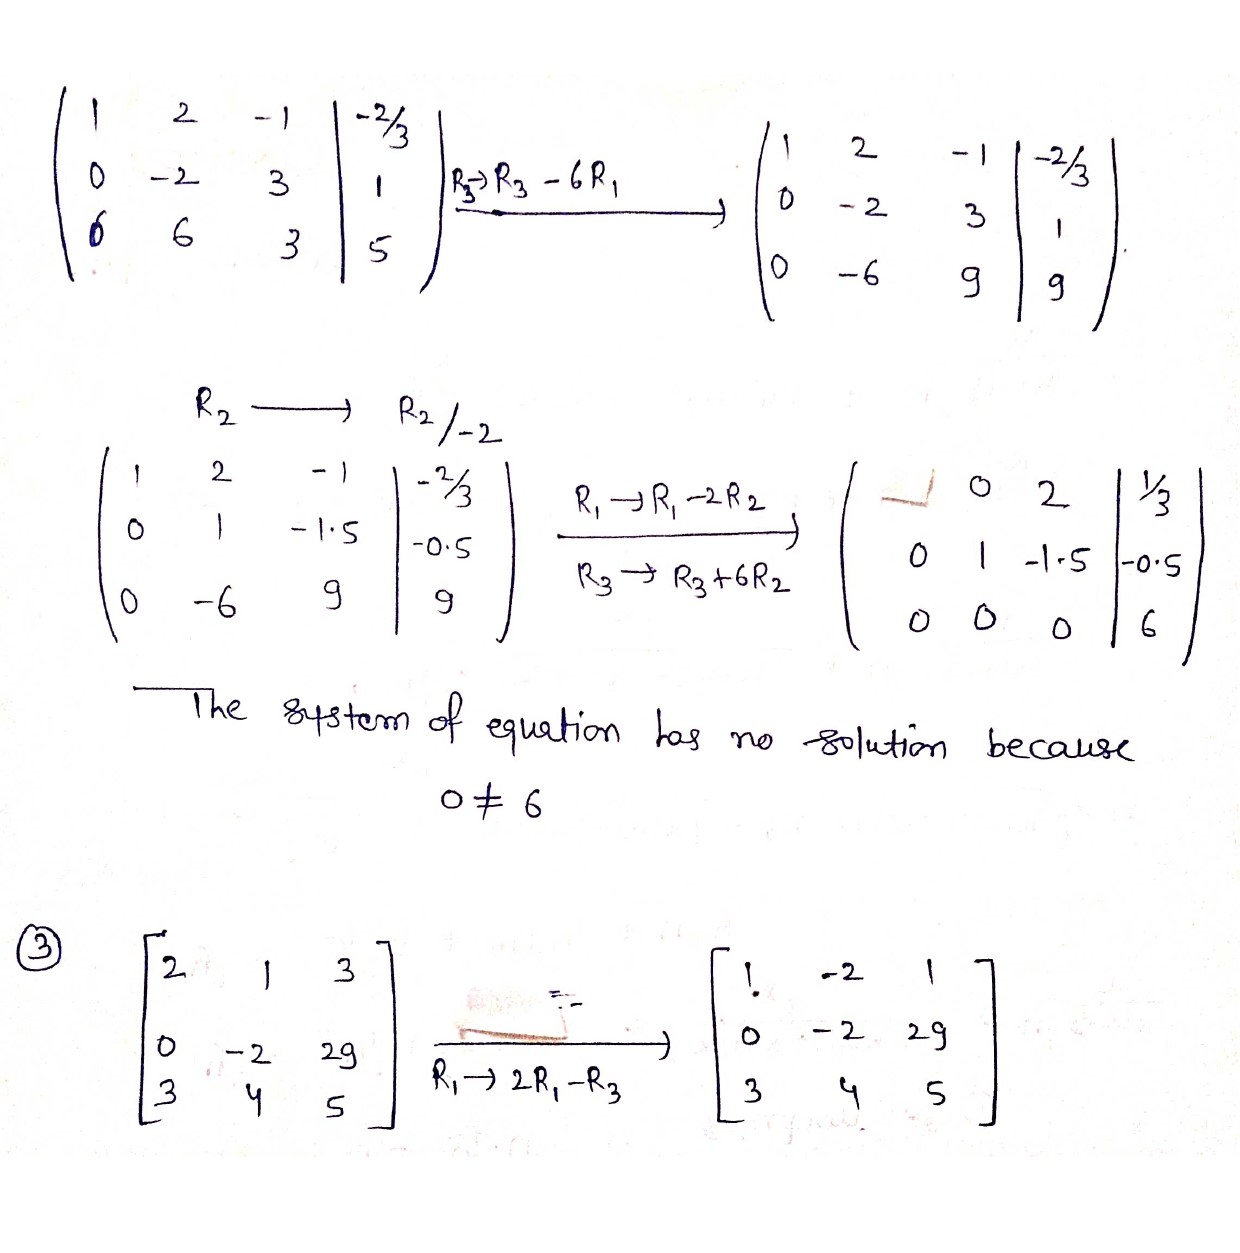 1 2 -1 | -2/3
0 -2 3 | 1
6 6 3 | 5
R₃→R₃ -6R₁
1 2 -1 | -2/3
0 -2 3 | 1
0 -6 9 | 9
R₂ → R₂/-2
1 2 -1 | -2/3
0 1 -1.5 | -0.5
0 -6 9 | 9
R₁ → R₁ -2R₂
R₃ → R₃+6R₂
0 2 | 1/3
0 1 -1.5 | -0.5
0 0 0 | 6
The system of equation has no solution because
0 ≠ 6
③
2 1 3
0 -2 29
3 4 5
R₁→ 2R₁-R₃
1 -2 1
0 -2 29
3 4 5